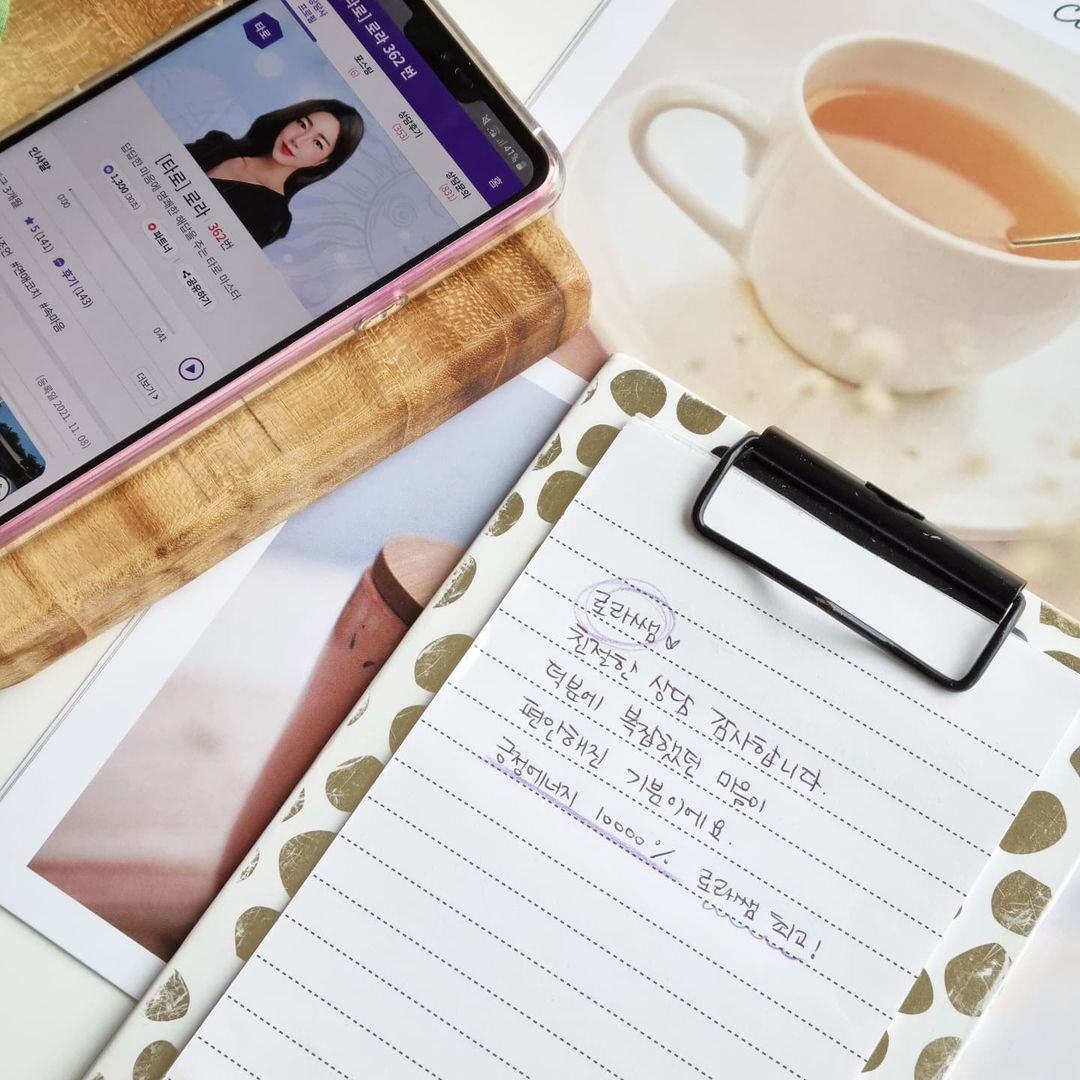 [타로] 로라 362 번
41%
상담사
프로필
포스팅
(6)
상담후기
(353)
상담문의
(831)
타로
[타로] 로라 362번
답답한 마음에 명쾌한 해답을 주는 타로 마스터
1,300 (30초)
파트너
공유하기
인사말
0:00
0:41
5 (141)
후기 (143)
3개월
#연애코치 #속마음
더보기 >
(등록일 2021. 11. 08)
로라쌤♡
친절한 상담 감사합니다
덕분에 복잡했던 마음이
편안해진 기분이에요.
긍정에너지 10000% 로라쌤 최고!